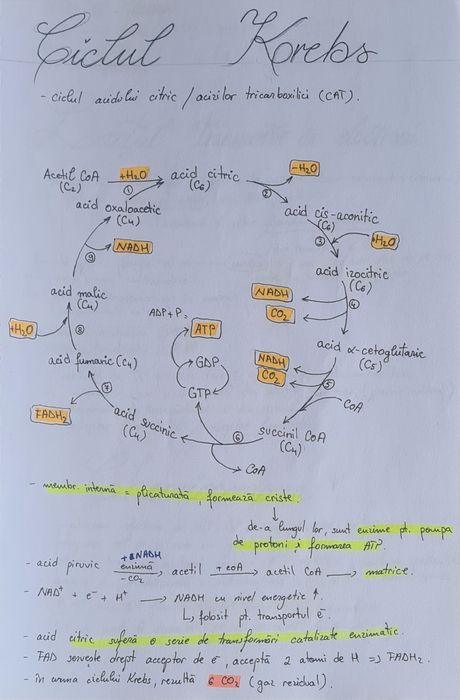 Ciclul Krebs
- ciclul acidului citric / acizilor tricarboxilici (CAT).
Acetil CoA
(C₂)
+H₂O
①
acid citric
(C₆)
-H₂O
②
acid cis-aconitic
(C₆)
③
+H₂O
acid izocitric
(C₆)
NADH
④
CO₂
acid α-cetoglutaric
(C₅)
NADH
CO₂
⑤
CoA
succinil CoA
(C₄)
⑥
CoA
acid succinic
(C₄)
GTP
GDP
ADP + P
ATP
⑦
FADH₂
acid fumaric (C₄)
⑧
+H₂O
acid malic
(C₄)
⑨
NADH
acid oxaloacetic
(C₄)
- membr. internă = plicaturată, formează criste.
↓
de-a lungul lor, sunt enzime pt. pompa
de protoni și formarea ATP.
+NADH
- acid piruvic enzimă → acetil +CoA → acetil CoA → matrice.
-CO₂
- NAD⁺ + e⁻ + H⁺ → NADH cu nivel energetic ↑
↳ folosit pt. transportul e⁻.
- acid citric suferă o serie de transformări catalizate enzimatic.
- FAD servește drept acceptor de e⁻, acceptă 2 atomi de H => FADH₂.
- în urma ciclului Krebs, rezultă 6 CO₂ (gaz rezidual).